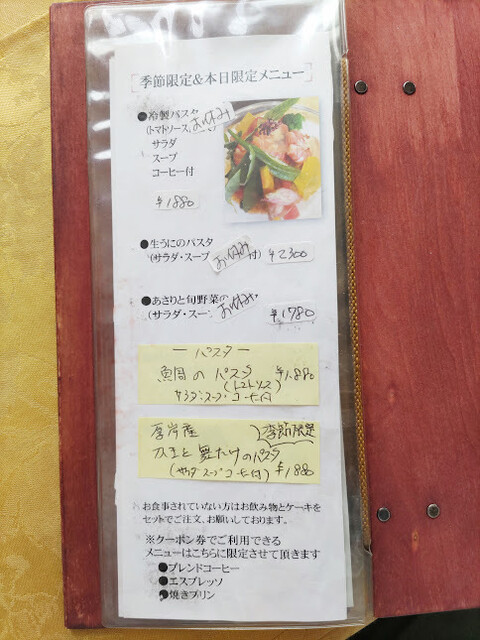 季節限定&本日限定メニュー
●冷製パスタ お休み
(トマトソース
サラダ
スープ
コーヒー付
¥1880
●生うにのパスタ
(サラダ・スープ お休み 付) ¥2300
●あさりと旬野菜の お休み
(サラダ・スー ¥1780
ーパスター
鯛のパスタ ¥1.880
(トマトソース)
サラダ・スープコーヒー付
厚岸産 季節限定
カキと舞たけのパスタ
(サラダ スープ コーヒー付) ¥1880
お食事されていない方はお飲み物とケーキを
セットでご注文、お願いしております。
※クーポン券でご利用できる
メニューはこちらに限定させて頂きます
●ブレンドコーヒー
●エスプレッソ
●焼きプリン